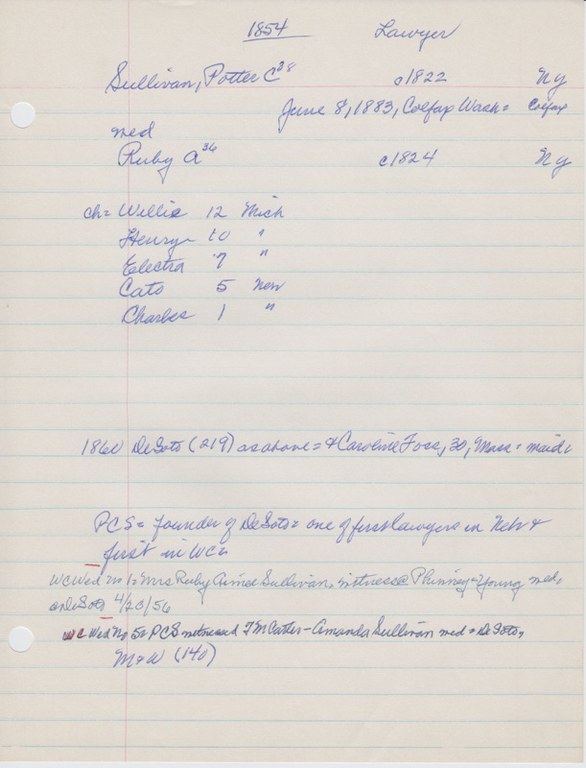 1854 Lawyer
Sullivan, Potter C 38 c1822 Ny
June 8, 1883, Colfax Wash= Colfax
med
Ruby A 36 c1824 Ny
ch= Willis 12 Mich
Henry 10 "
Electra 7 "
Cato 5 Neb
Charles 1 "
1860 DeSoto (219) as above = & Caroline Foss, 30, Mass = maid
PCS = founder of DeSoto = one of first lawyers in Nebr &
first in WC=
WC Wed no 1= Mrs Ruby Sullivan, witness @ Phinney-Young med,
on DeSoto 4/23/56
WC Wed No 5= PCS witnessed T M Carter - Amanda Sullivan med = DeSoto,
M & W (140)